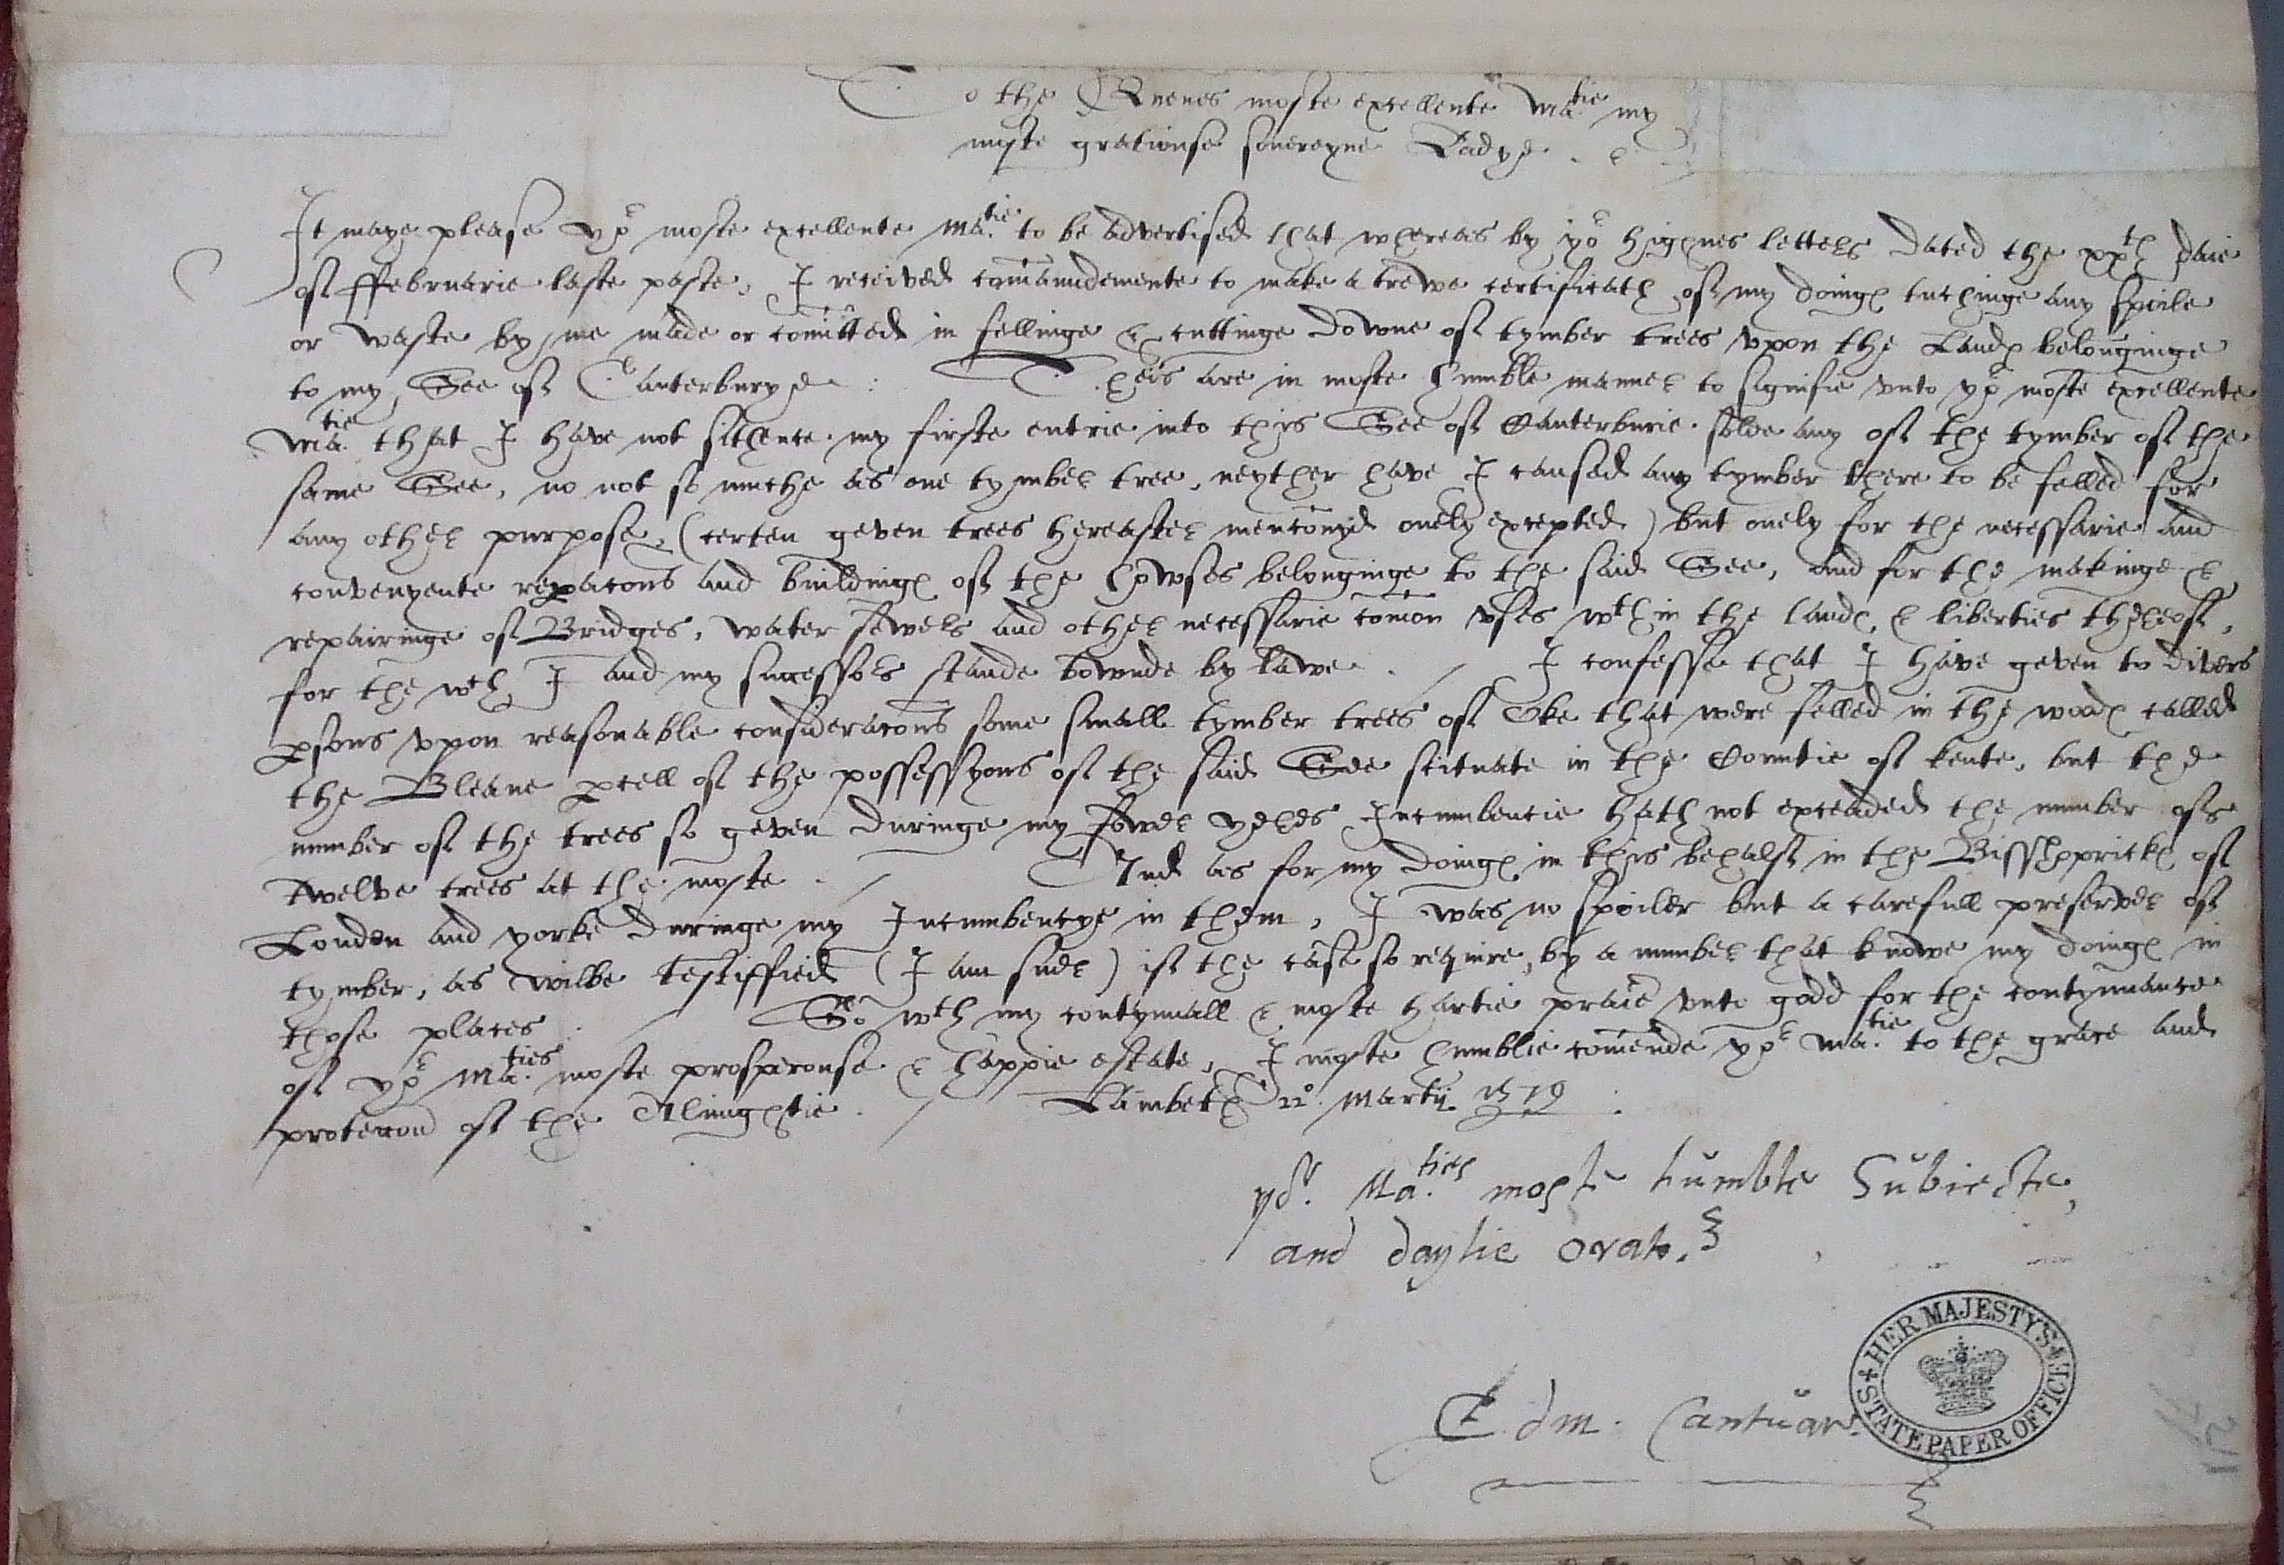 To the Quenes moste excellente Ma.tie my
moste gratiouse souereyne Ladye.
It maye please yor moste excellente Ma.tie to be advertised that whereas by yor highnes letters dated the xxth daie
of ffebruarie laste paste, I received comaundemente to make a trewe certificath of my doinges tuchinge any spoile
or waste by me made or comitted in fellinge & cuttinge downe of tymber trees vpon the Landes belonginge
to my See of Canterburye : Theis are in moste humble manner to signifie vnto yor moste excellente
Ma.tie that I have not sithence my firste entrie into this See of Canterburie solde any of the tymber of the
same See, no not so muche as one tymber tree, neyther have I caused any tymber there to be felled for
any other purpose, (certen geven trees hereafter menconyd onely excepted) but onely for the necessarie and
convenyente repacons and buildinges of the howses belonginge to the said See, and for the makinge &
repairinge of Bridges, water sewers and other necessarie comon vses wth in the landes, & liberties thereof,
for the wch I and my successors stande bownde by lawe. I confesse that I have geven to divers
psons vpon reasonable consideracons some small tymber trees of Oke that were felled in the woodes called
the Bleane pcell of the possessyons of the said See scituate in the Countie of kente, but the
number of the trees so geven duringe my fower yeres Incumbencie hath not exceaded the number of
twelve trees at the moste. And as for my doinges in this behalf in the Bisshppricks of
London and yorke duringe my Incumbencye in them, I was no spoiler but a carefull preserver of
tymber, as wilbe testiffied (I am sure) if the case so require, by a number that knowe my doinges in
those places. So wth my contynuall & moste hartie praier vnto godd for the contynuance
of yor Ma.ties moste prosperouse & happie estate, I moste humblie comende yor Ma.tie to the grace and
protecon of the Almightie. Lambeth 22o Martij 1579
yor. Ma.ties moste humble Subiecte,
and daylie Orator.
Edm. Cantuar.
HER MAJESTY'S STATE PAPER OFFICE